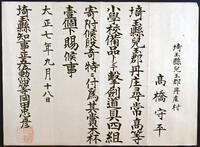 埼玉縣兒玉郡丹庄村
高橋守平
埼玉縣兒玉郡丹庄尋常高等
小學校備品トシテ擊劍道具四組
寄附候段奇特ニ付為其賞木杯
壹個下賜候事
大正七年九月十八日
埼玉縣知事正五位勲四等岡田忠彦